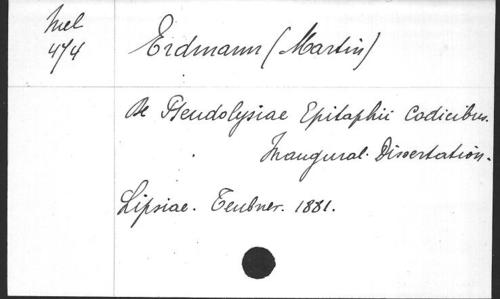 Mel
474
Erdmann (Martin)
De Pseudolysiae Epitaphii Codicibus.
Inaugural. Dissertation.
Lipsiae. Teubner. 1881.